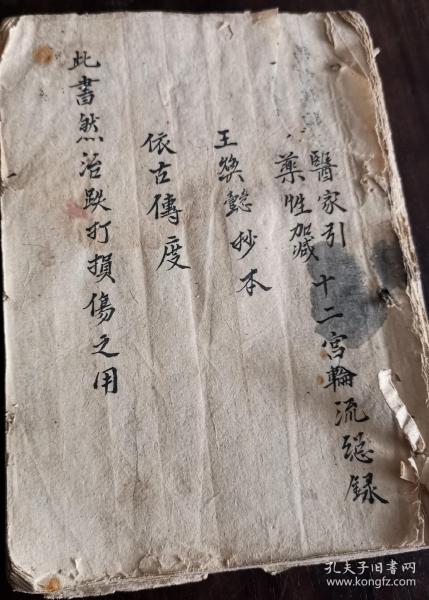 醫家引
藥性加減
十二宮輪流總録
王煥懿抄本
依古傳度
此書然治跌打損傷之用
孔夫子旧书网
www.kongfz.com